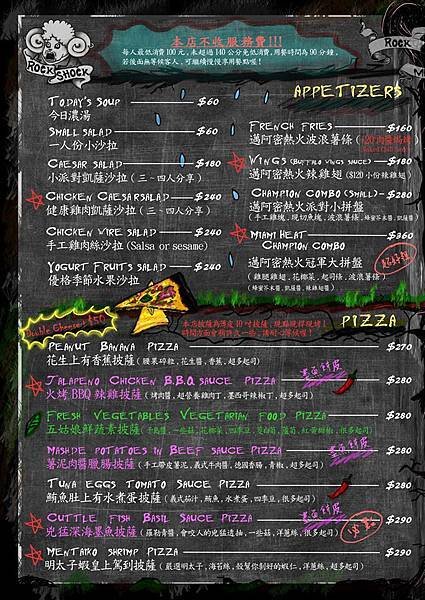 本店不收服務費!!!
每人最低消費100元，未超過140公分免低消費，用餐時間為90分鐘，
若後面無等候客人，可繼續慢慢享用餐點喔！
ROCK SHOCK
ROCK
APPETIZERS
TODAY'S SOUP $60
今日濃湯
SMALL SALAD $60
一人份小沙拉
CAESAR SALAD $180
小派對凱薩沙拉（三~四人分享）
CHICKEN CAESARSALAD $240
健康雞肉凱薩沙拉（三~四人分享）
CHICKEN WIRE SALAD $240
手工雞肉絲沙拉(Salsa or sesame)
YOGURT FRUITS SALAD $240
優格季節水果沙拉
FRENCH FRIES $160
邁阿密熱火波浪薯條
WINGS (BUFFALO WINGS SAUCE) $180
邁阿密熱火辣雞翅 ($120小份辣雞翅)
CHAMPION COMBO (SMALL) $280
邁阿密熱火派對小拼盤
MIAMI HEAT $360
CHAMPION COMBO
邁阿密熱火冠軍大拼盤
（雞腿雞翅，花椰菜，起司條，波浪薯條）
超好拉
Double Cheese +$50
PIZZA
PEANUT BANANA PIZZA $270
花生上有香蕉披薩（腰果碎粒，花生醬，香蕉，超多起司）
JALAPENO CHICKEN B.B.Q. SAUCE PIZZA $280
火烤BBQ辣雞披薩（烤肉醬，超營養雞肉丁，墨西哥辣椒丁，超多起司）
FRESH VEGETABLES VEGETARIAN FOOD PIZZA $280
五姑娘鮮蔬素披薩
MASHDE POTATOES IN BEEF SAUCE PIZZA $280
薯泥肉醬臘腸披薩（手工帶皮薯泥，義式牛肉醬，德國香腸，青椒，超多起司）
TUNA EGGS TOMATO SAUCE PIZZA $280
鮪魚肚上有水煮蛋披薩（義式茄汁，鮪魚，水煮蛋，四季豆，很多起司）
CUTTLE FISH BASIL SAUCE PIZZA $290
兇猛深海墨魚披薩
MENTAIKO SHRIMP PIZZA $290
明太子蝦皇上駕到披薩